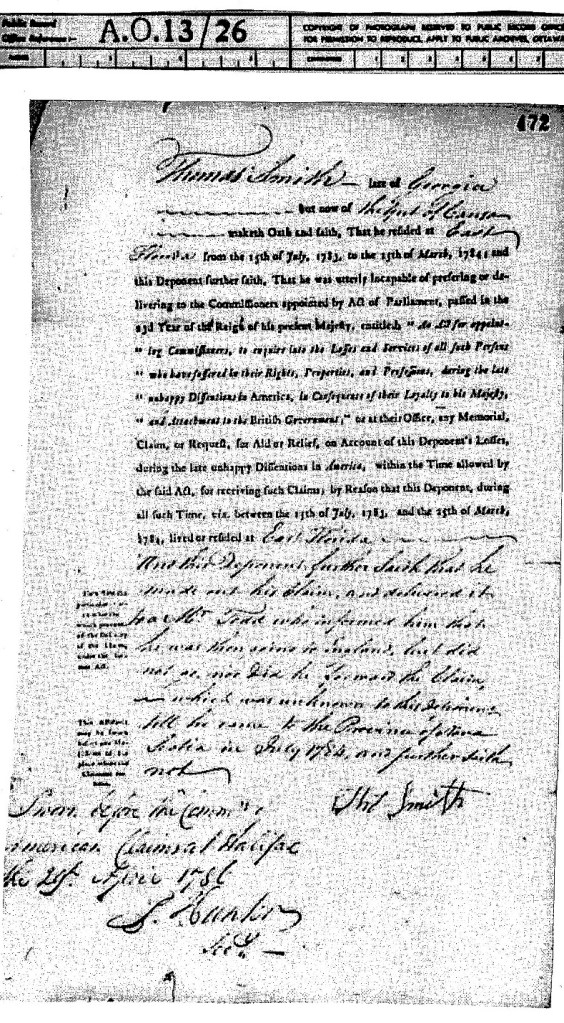 Public Record
Office Reference:-
A.O.13/26
COPYRIGHT OF PHOTOGRAPH RESERVED TO PUBLIC RECORD OFFICE
FOR PERMISSION TO REPRODUCE, APPLY TO PUBLIC ARCHIVES, OTTAWA
472
Thomas Smith late of Georgia
but now of the Gut of Canso
maketh Oath and saith, That he resided at East
Florida from the 15th of July, 1783, to the 25th of March, 1784; and
this Deponent further saith, That he was utterly incapable of prefering or de-
livering to the Commissioners appointed by Act of Parliament, passed in the
23d Year of the Reign of his present Majesty, entitled, "An Act for appoint-
"ing Commissioners, to enquire into the Losses and Services of all such Persons
"who have suffered in their Rights, Properties, and Professions, during the late
"unhappy Dissentions in America, in Consequence of their Loyalty to his Majesty,
"and Attachment to the British Government," or at their Office, any Memorial,
Claim, or Request, for Aid or Relief, on Account of this Deponent's Losses,
during the late unhappy Dissentions in America, within the Time allowed by
the said Act, for receiving such Claims, by Reason that this Deponent, during
all such Time, viz. between the 15th of July, 1783, and the 25th of March,
1784, lived or resided at East Florida
And this Deponent further Saith that he
made out his Claim, and delivered it
to a Mr Todd who informed him that
he was then going to England, but did
not go, nor did he forward the Claim,
which was unknown to this Deponent
till he came to the Province of Nova
Scotia in July 1784, and further saith
not
of the Claim
under the
Act.
This Affidavit
may be sworn
before any
place where the
Claimant
Thos Smith
Sworn before the Commrs
American Claims at Halifax
the 21st April 1786
J. Hunter
Secy